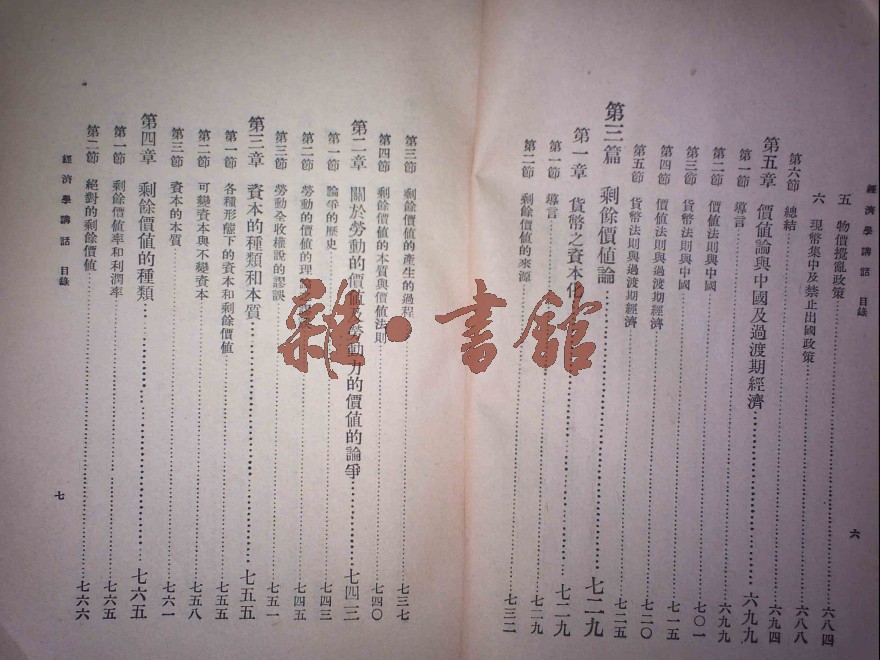 經濟學講話　目錄
六
五　物價攪亂政策……六八四
六　現幣集中及禁止出國政策……六八八
第六節　總結……六九四
第五章　價值論與中國及過渡期經濟……六九九
第一節　導言……六九九
第二節　價值法則與中國……七〇一
第三節　貨幣法則與中國……七一五
第四節　價值法則與過渡期經濟……七二〇
第五節　貨幣法則與過渡期經濟……七二五
第三篇　剩餘價値論……七二九
第一章　貨幣之資本化……七二九
第一節　導言……七二九
第二節　剩餘價値的來源……七三二
第三節　剩餘價値的產生的過程……七三七
第四節　剩餘價値的本質與價値法則……七四〇
第二章　關於勞動的價値及勞動力的價値的論爭……七四三
第一節　論爭的歷史……七四三
第二節　勞動的價値的理論……七四五
第三節　勞動全收權說的謬誤……七五一
第三章　資本的種類和本質……七五五
第一節　各種形態下的資本和剩餘價値……七五五
第二節　可變資本與不變資本……七五八
第三節　資本的本質……七六一
第四章　剩餘價値的種類……七六五
第一節　剩餘價値率和利潤率……七六五
第二節　絕對的剩餘價値……七六六
經濟學講話　目錄
七
雜·書館